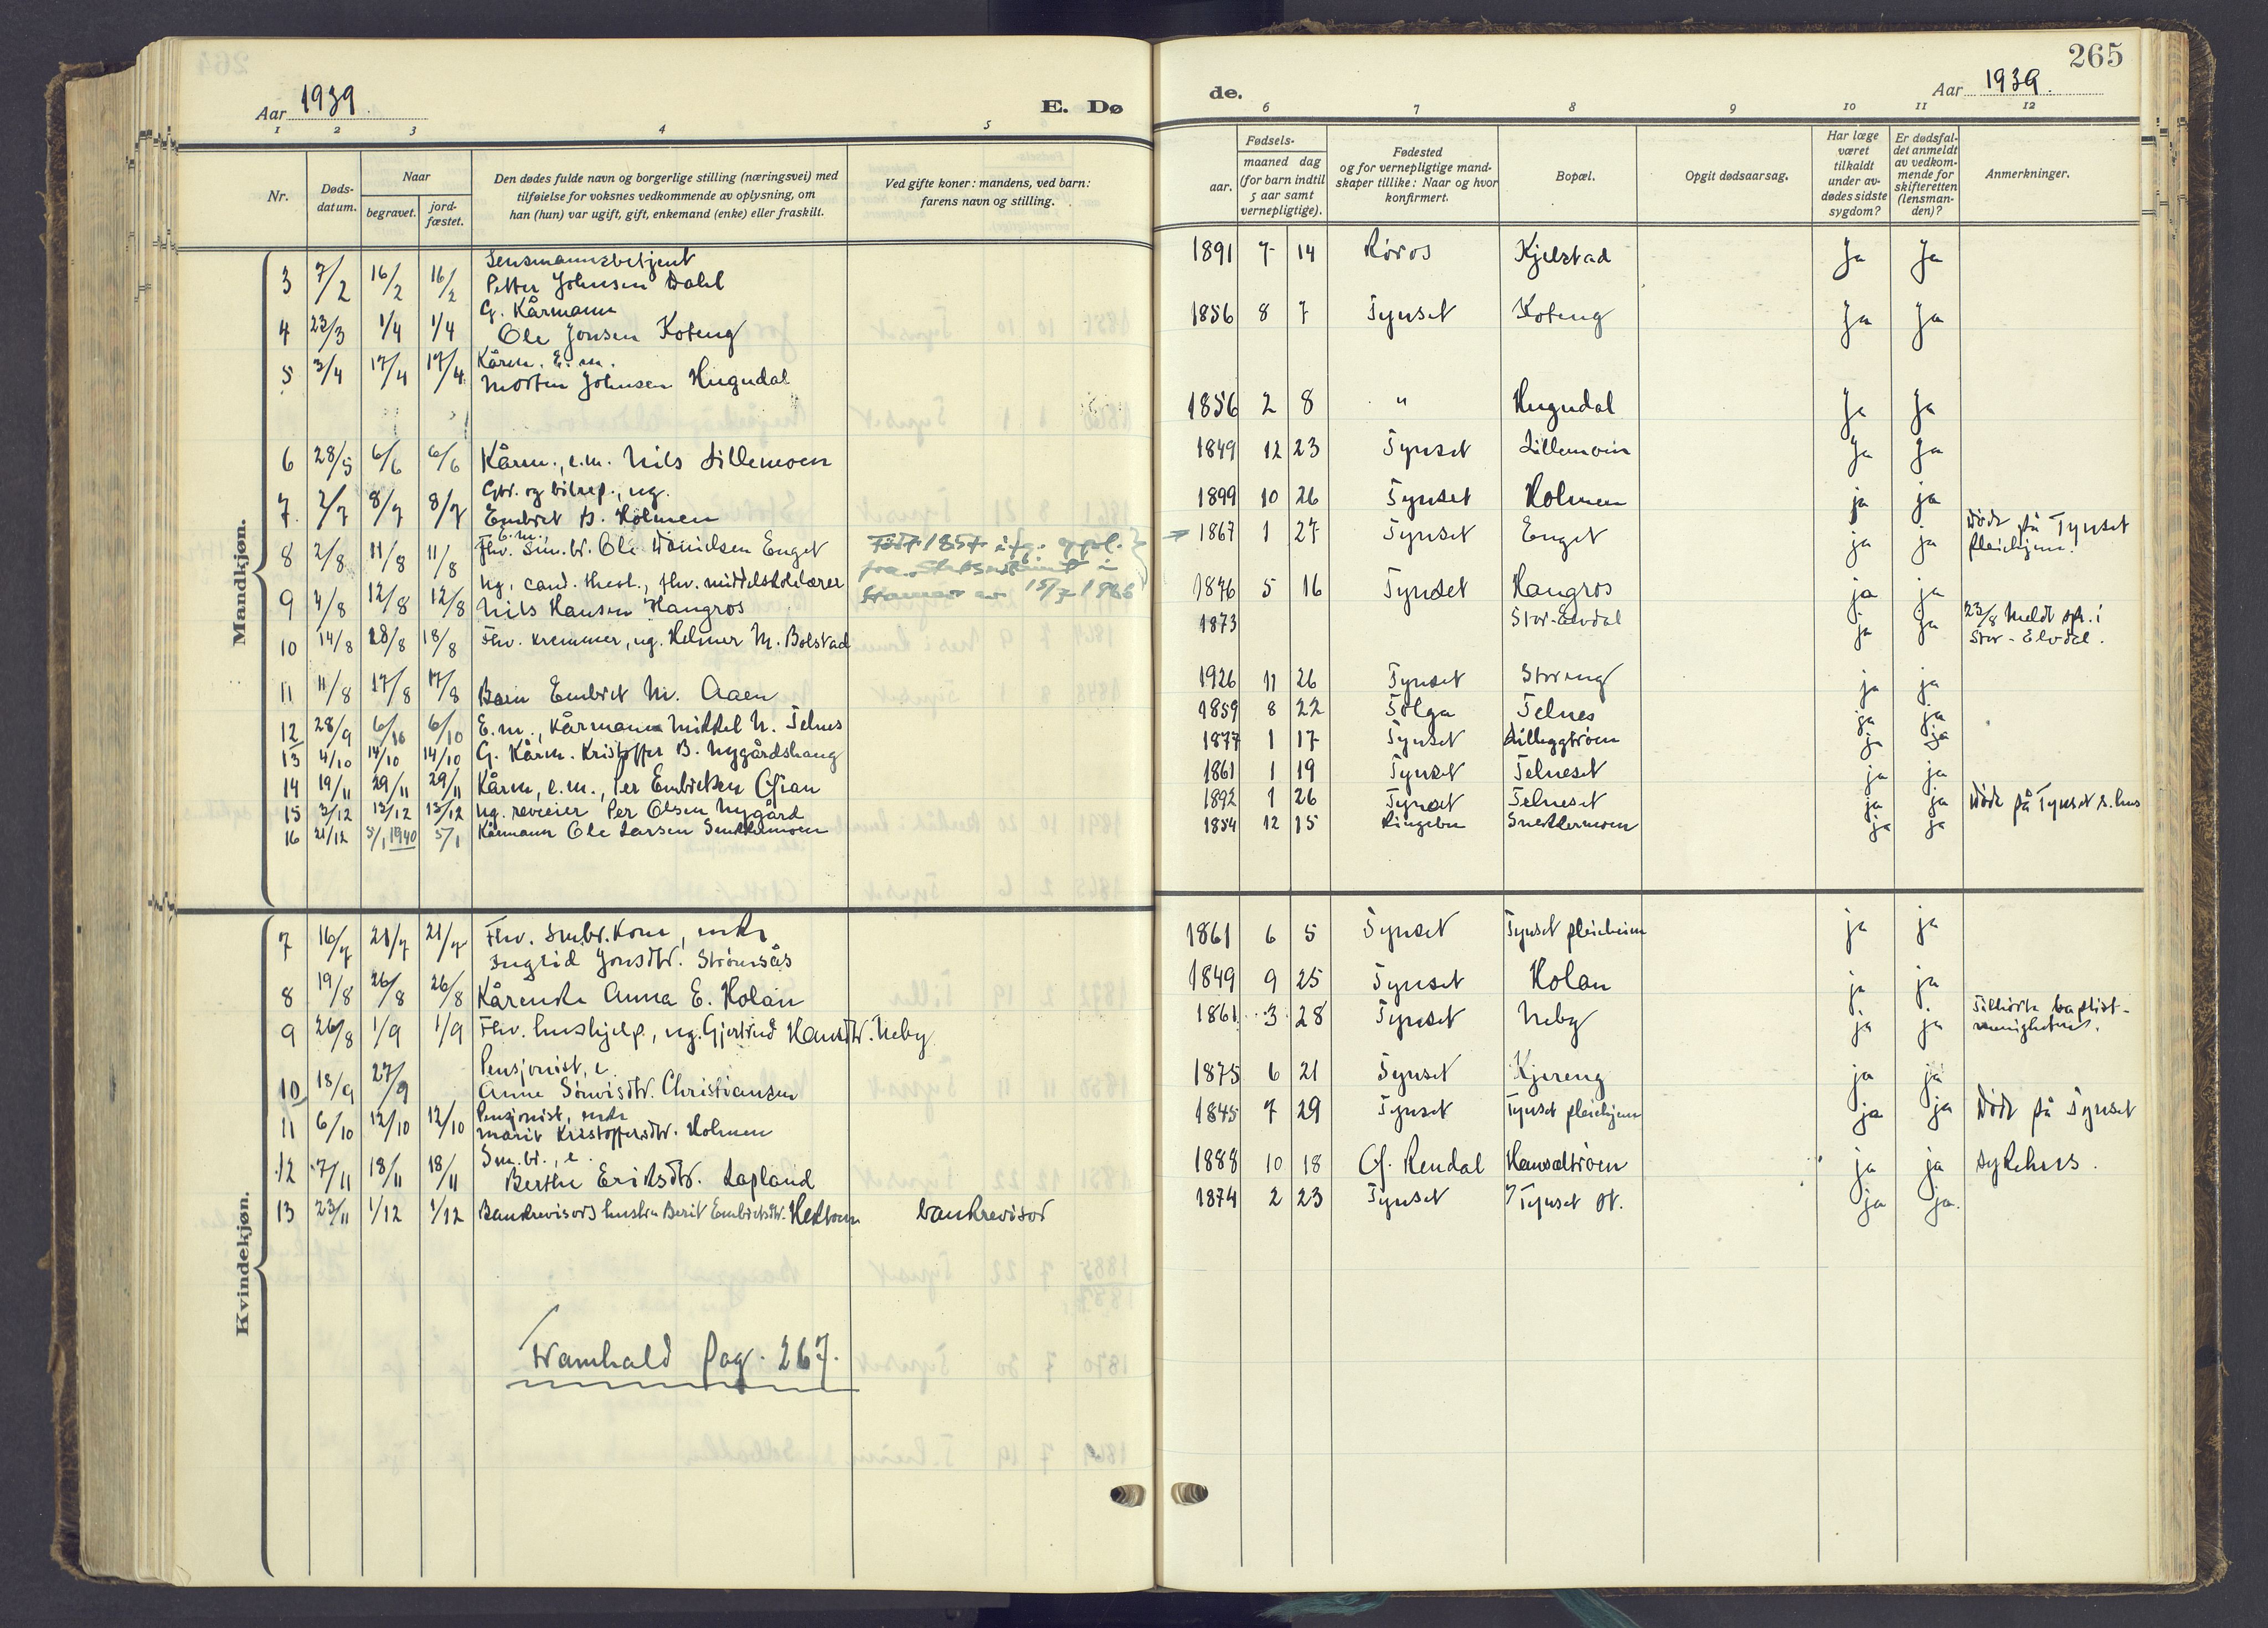 265
Aar 1939.
E. Dø
1 2 3 4 5
Nr.
Døds-
datum.
Naar
begravet.
jord-
fæstet.
Den dødes fulde navn og borgerlige stilling (næringsvei) med
tilføielse for voksnes vedkommende av oplysning, om
han (hun) var ugift, gift, enkemand (enke) eller fraskilt.
Ved gifte koner: mandens, ved barn:
farens navn og stilling.
Mandkjøn.
Lensmannsbetjent
3 7/2 16/2 16/2 Petter Johnsen Dahl
G. Kårmann
4 23/3 1/4 1/4 Ole Jonsen Koteng
Kårm. E. m.
5 3/4 17/4 17/4 Morten Johnsen Hugudal
6 28/5 6/6 6/6 Kårm., e.m. Nils Lillemoen
Gbr. og bilrep., ug.
7. 2/7 8/7 8/7 Embret B. Holmen
E.m.
8 2/8 11/8 11/8 Fhv. sm.br. Ole Danielsen Enget
Født 1857 ifg. oppl.
fra Statsarkivet i
Hamar av 15/7 1966
Ug. cand. theol., fhv. middelskolelærer
9 4/8 12/8 12/8 Nils Hansen Haugros
10 14/8 28/8 18/8 Fhv. kremmer, ug. Helmer M. Bolstad
11 11/8 17/8 17/8 Barn Embret M. Aaen
12 28/9 6/10 6/10 E.m., Kårmann Mikkel N. Telnes
13 4/10 14/10 14/10 G. Kårm. Kristoffer B. Nygårdshaug
14 19/11 29/11 29/11 Kårm, e.m., Per Embretsen Gran
15 3/12 13/12 13/12 Ug. reveier Per Olsen Nygård
16 21/12 5/1 1940 5/1 Kårmann Ole Larsen Snekkermoen
Kvindekjøn.
7 16/7 21/7 21/7 Fhv. smbr.kone, enke
Ingrid Jonsdtr. Strømsås
8 19/8 26/8 26/8 Kårenke Anna E. Holan
9 26/8 1/9 1/9 Fhv. hushjelp, ug. Gjertrud Hansdtr. Neby
Pensjonist, e.
10 18/9 27/9 Anne Simensdtr. Christiansen
Pensjonist, enke
11 6/10 12/10 12/10 Marit Kristoffersdtr. Holmen
Sm.br., e.
12 7/11 18/11 18/11 Berthe Eriksdtr. Lapland
13 23/11 1/12 1/12 Bankrevisors hustru Berit Embretsdtr. Hektoen bankrevisor
Framhald pag. 267.
de.
Aar 1939.
6 7 8 9 10 11 12
Fødsels-
aar.
maaned dag
(for barn indtil
5 aar samt
vernepligtige).
Fødested
og for vernepligtige mand-
skaper tillike: Naar og hvor
konfirmert.
Bopæl.
Opgit dødsaarsag.
Har læge
været
tilkaldt
under av-
dødes sidste
sygdom?
Er dødsfal-
det anmeldt
av vedkom-
mende for
skifteretten
(lensman-
den)?
Anmerkninger.
1891 7 14 Røros Kjelstad Ja Ja
1856 8 7 Tynset Koteng Ja Ja
1856 2 8 " Hugudal Ja Ja
1849 12 23 Tynset Lillemoen Ja Ja
1899 10 26 Tynset Holmen ja ja
1867 1 27 Tynset Enget ja ja Døde på Tynset
pleiehjem.
1876 5 16 Tynset Haugros ja ja
1873 Stor-Elvdal ja ja 23/8 meldt spr. i
Stor-Elvdal.
1926 11 26 Tynset Storeng ja ja
1859 8 22 Tolga Telnes ja ja
1877 1 17 Tynset Lilleggtrøen ja ja
1861 1 19 Tynset Telneset ja ja
1892 1 26 Tynset Telneset ja ja Døde på Tynset s.hus
1854 12 15 Ringebu Snekkermoen ja ja
1861 6 5 Tynset Tynset pleiehjem ja ja
1849 9 25 Tynset Holan ja ja
1861 3 28 Tynset Neby ja ja Tilhørte baptist-
menigheten.
1875 6 21 Tynset Kjereng ja ja
1845 7 29 Tynset Tynset pleiehjem ja ja Døde på Tynset
1888 10 18 Ø. Rendal Hansæltrøen ja ja sykehus.
1874 2 23 Tynset Tynset st. ja ja.